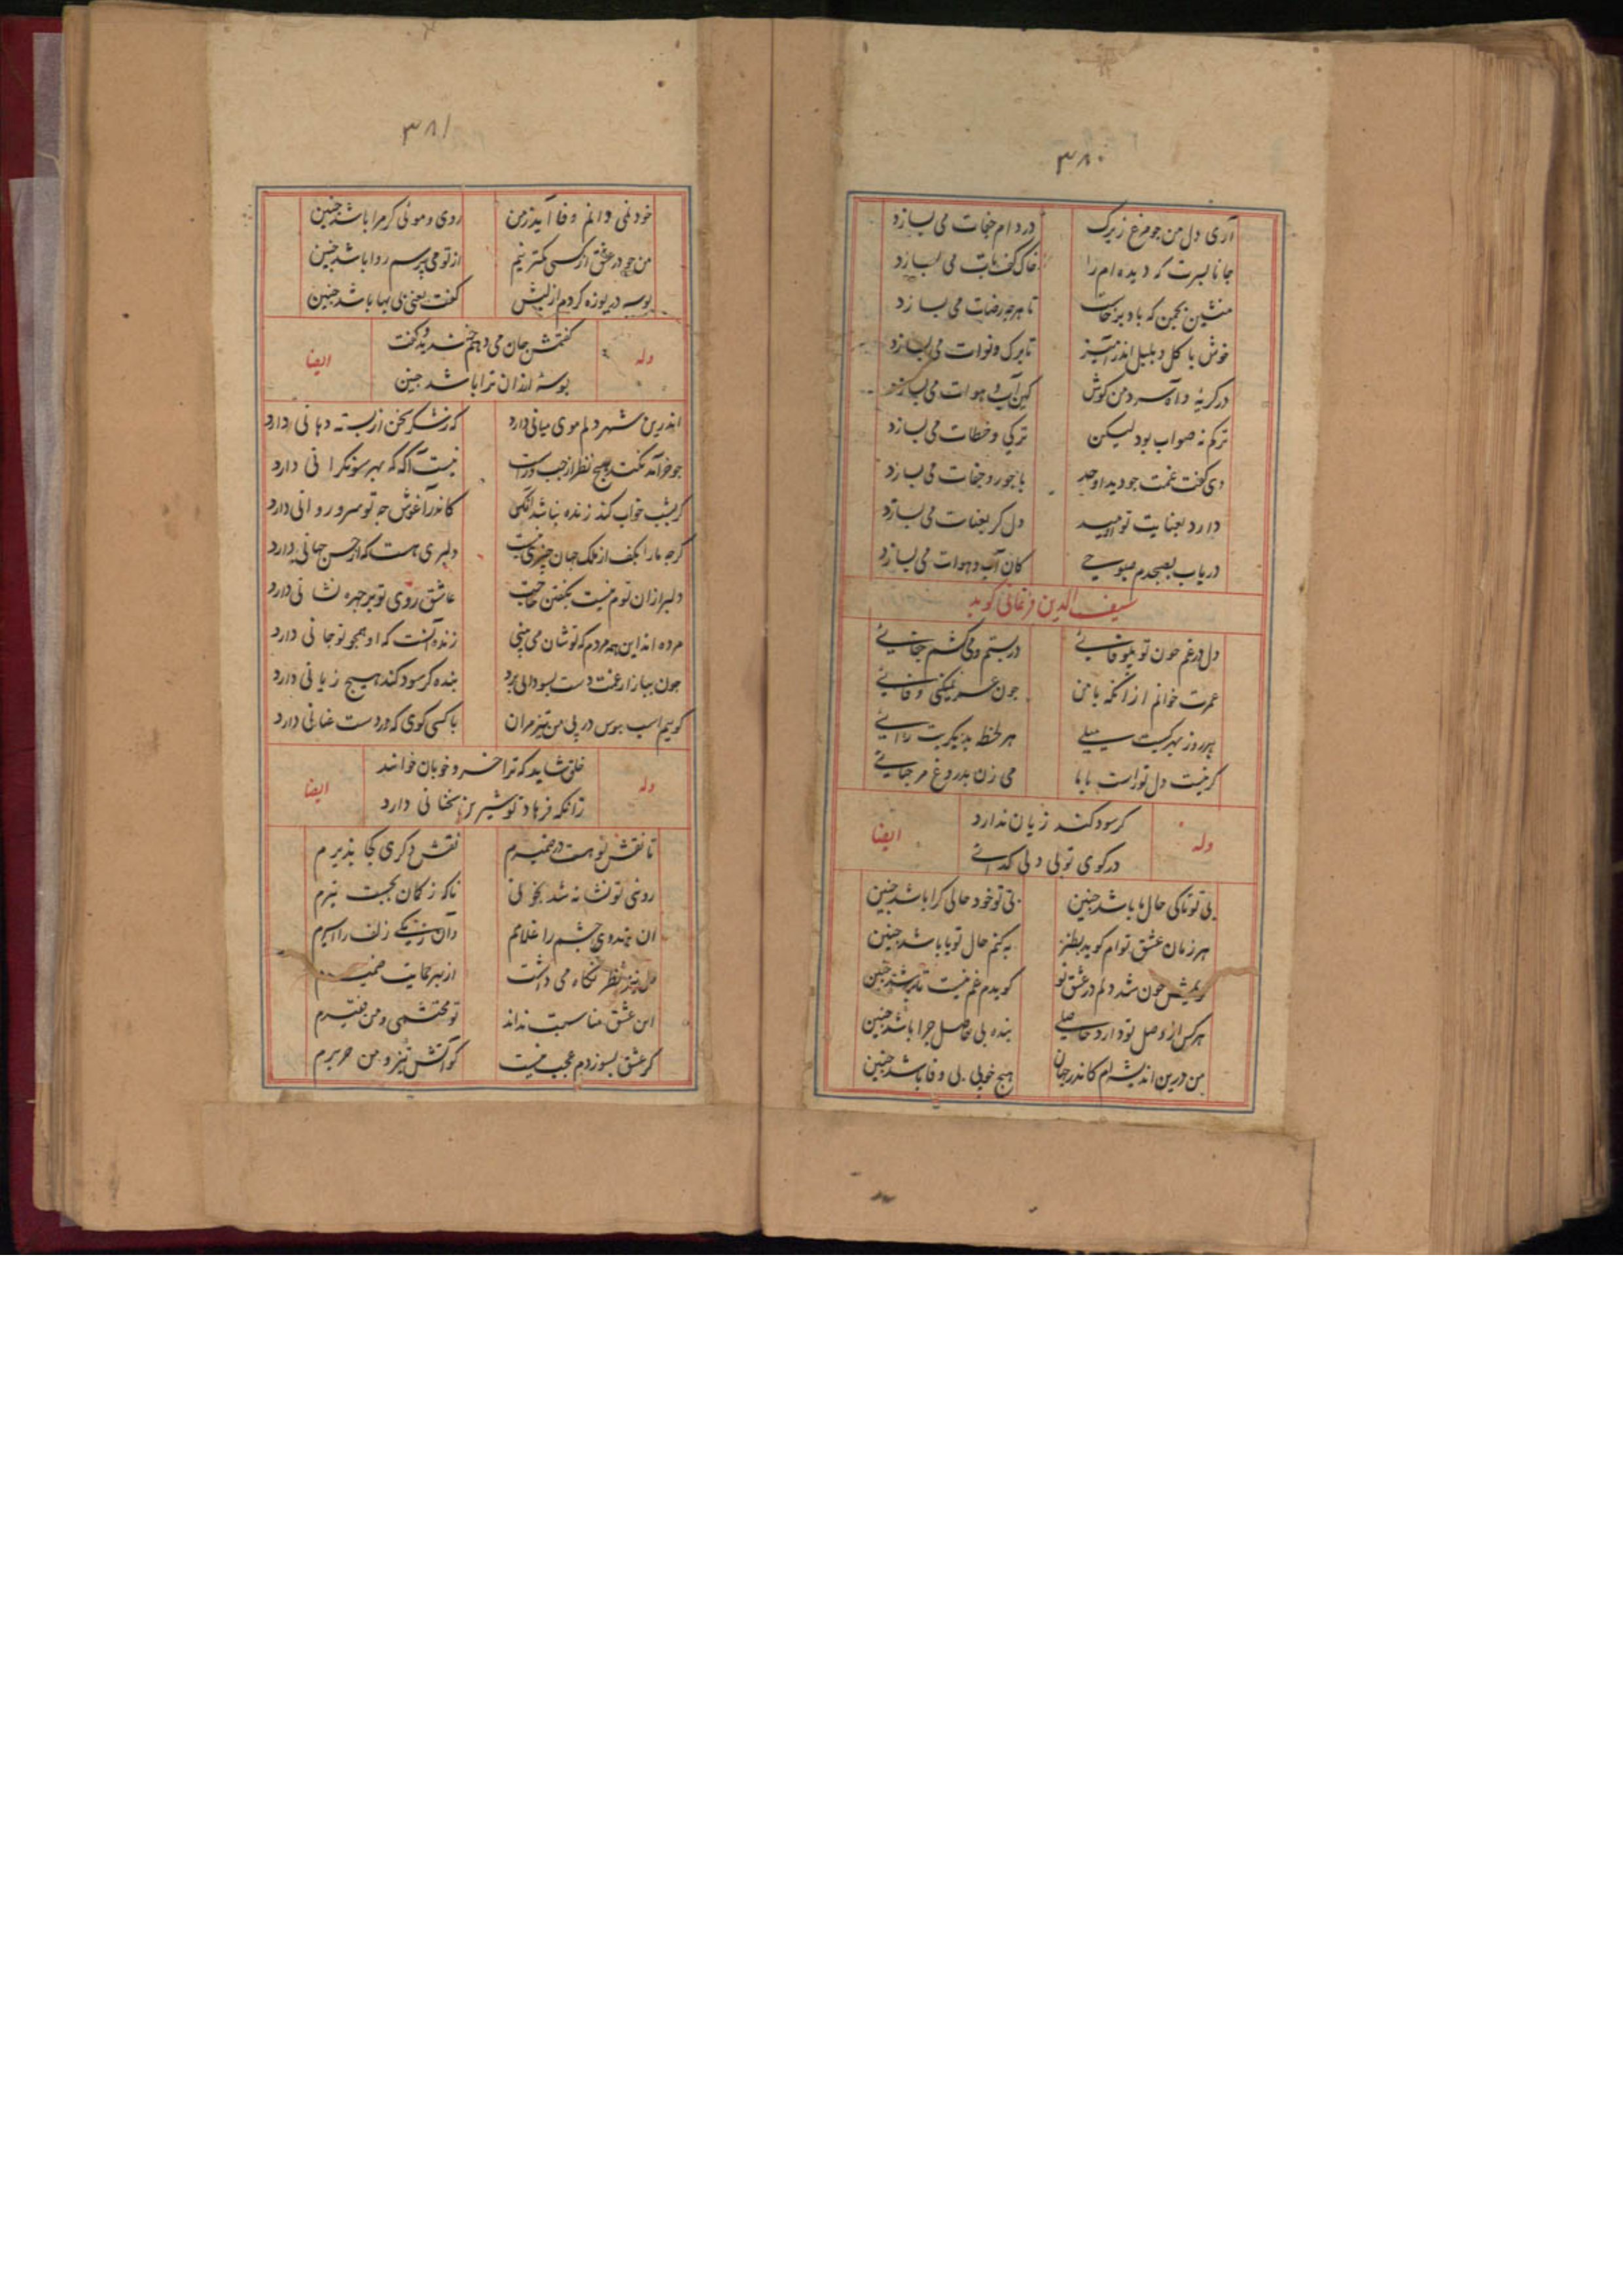 ۳۸۰
آری دل من جو مرغ زیرک در دام جفات می بسازد
جانا بسرت که دیده ام را خاک کف پات می بسازد
منشین که باد برخاست تا هرجه رضات می بسازد
خوش با کل و بلبل اندرآمیز تا برک و نوات می بسازد
در کریه و آه سرد من کوش کین آب و هوات می بسازد
ترکم نه صواب بود لیکن ترکی و خطات می بسازد
دی کفت غمت جو دید اوحد با جور و جفات می بسازد
دارد بعنایت تو امید دل کر بعنات می بسازد
دریاب بصبحدم صبوحی کان آب و هوات می بسازد
سیف الدین فرغانی کوید
دل در غم جون تو بیوفائی در بستم و می کشم جفائی
عمرت خوانم ازانکه با من جون عمر نمیکنی وفائی
هر روز بهرکست میلی هر لحظه بدیکریت رائی
کر نیست دل تو راست با ما می زن بدروغ مرحبائی
وله کر سود کند زیان ندارد ایضا
در کوی تو بی دلی کدائی
بی تو تاکی حال ما باشد جنین بی تو خود حالی کرا باشد جنین
هر زمان عشق توام کوید بطنز به کنم حال تو یا باشد جنین
کویمش خون شد دلم در عشق تو کویدم غم نیست تا باشد جنین
هرکس از وصل تو دارد حاصلی بنده بی حاصل جرا باشد جنین
من درین اندیشه ام کاندر جهان هیج خوبی بی وفا باشد جنین
۳۸۱
خود نمی دانم وفا آید ز من روی و موئی کر مرا باشد جنین
من جو در عشق از کسی کمتر نیم از تو می پرسم روا باشد جنین
بوسه دریوزه کردم از لبش کفت یعنی بی بها باشد جنین
وله کفتمش جان می دهم خندید و کفت ایضا
بوسۀ ازان ترا باشد جنین
اندرین شهر دلم موی میانی دارد که ز شکر سخن از بسته دهانی دارد
جو خرامد نکند هیج نظر از جب و راست نیست آکه که بهر سو نکرانی دارد
کر بشب خواب کند زنده نباشد آنکس کاندر آغوش جو تو سرو روانی دارد
کرجه ما را بکف از ملک جهان جیزی نیست دلبری هست که از حسن جهانی دارد
دلبرا زان توم نیست بکفتن حاجت عاشق روی تو بر جهره نشانی دارد
مرده اند این همه مردم که تو شان می بینی زنده آنست که او همجو تو جانی دارد
جون ببازار غمت دست بسودا بی برد بنده کر سود کند هیج زیانی دارد
کوییم اسب هوس در پی من تیز مران با کسی کوی که در دست عنانی دارد
وله خلق شاید که ترا خسرو خوبان خوانند ایضا
زانکه فرهاد تو شیرین سخنانی دارد
تا نقش تو هست در ضمیرم نقش دکری کجا پذیرم
روئی تو نشانه شد بخوبی ناکه ز کمان بجست تیرم
آن هندوی جشم را غلامم وآن زنکی زلف را اسیرم
نظر نکاه می داشت از بهر کفایت ضمیرم
این عشق مناسبت نداند تو محتشمی و من فقیرم
کر عشق بسوزدم عجب نیست کو آتش تیز و من حریرم